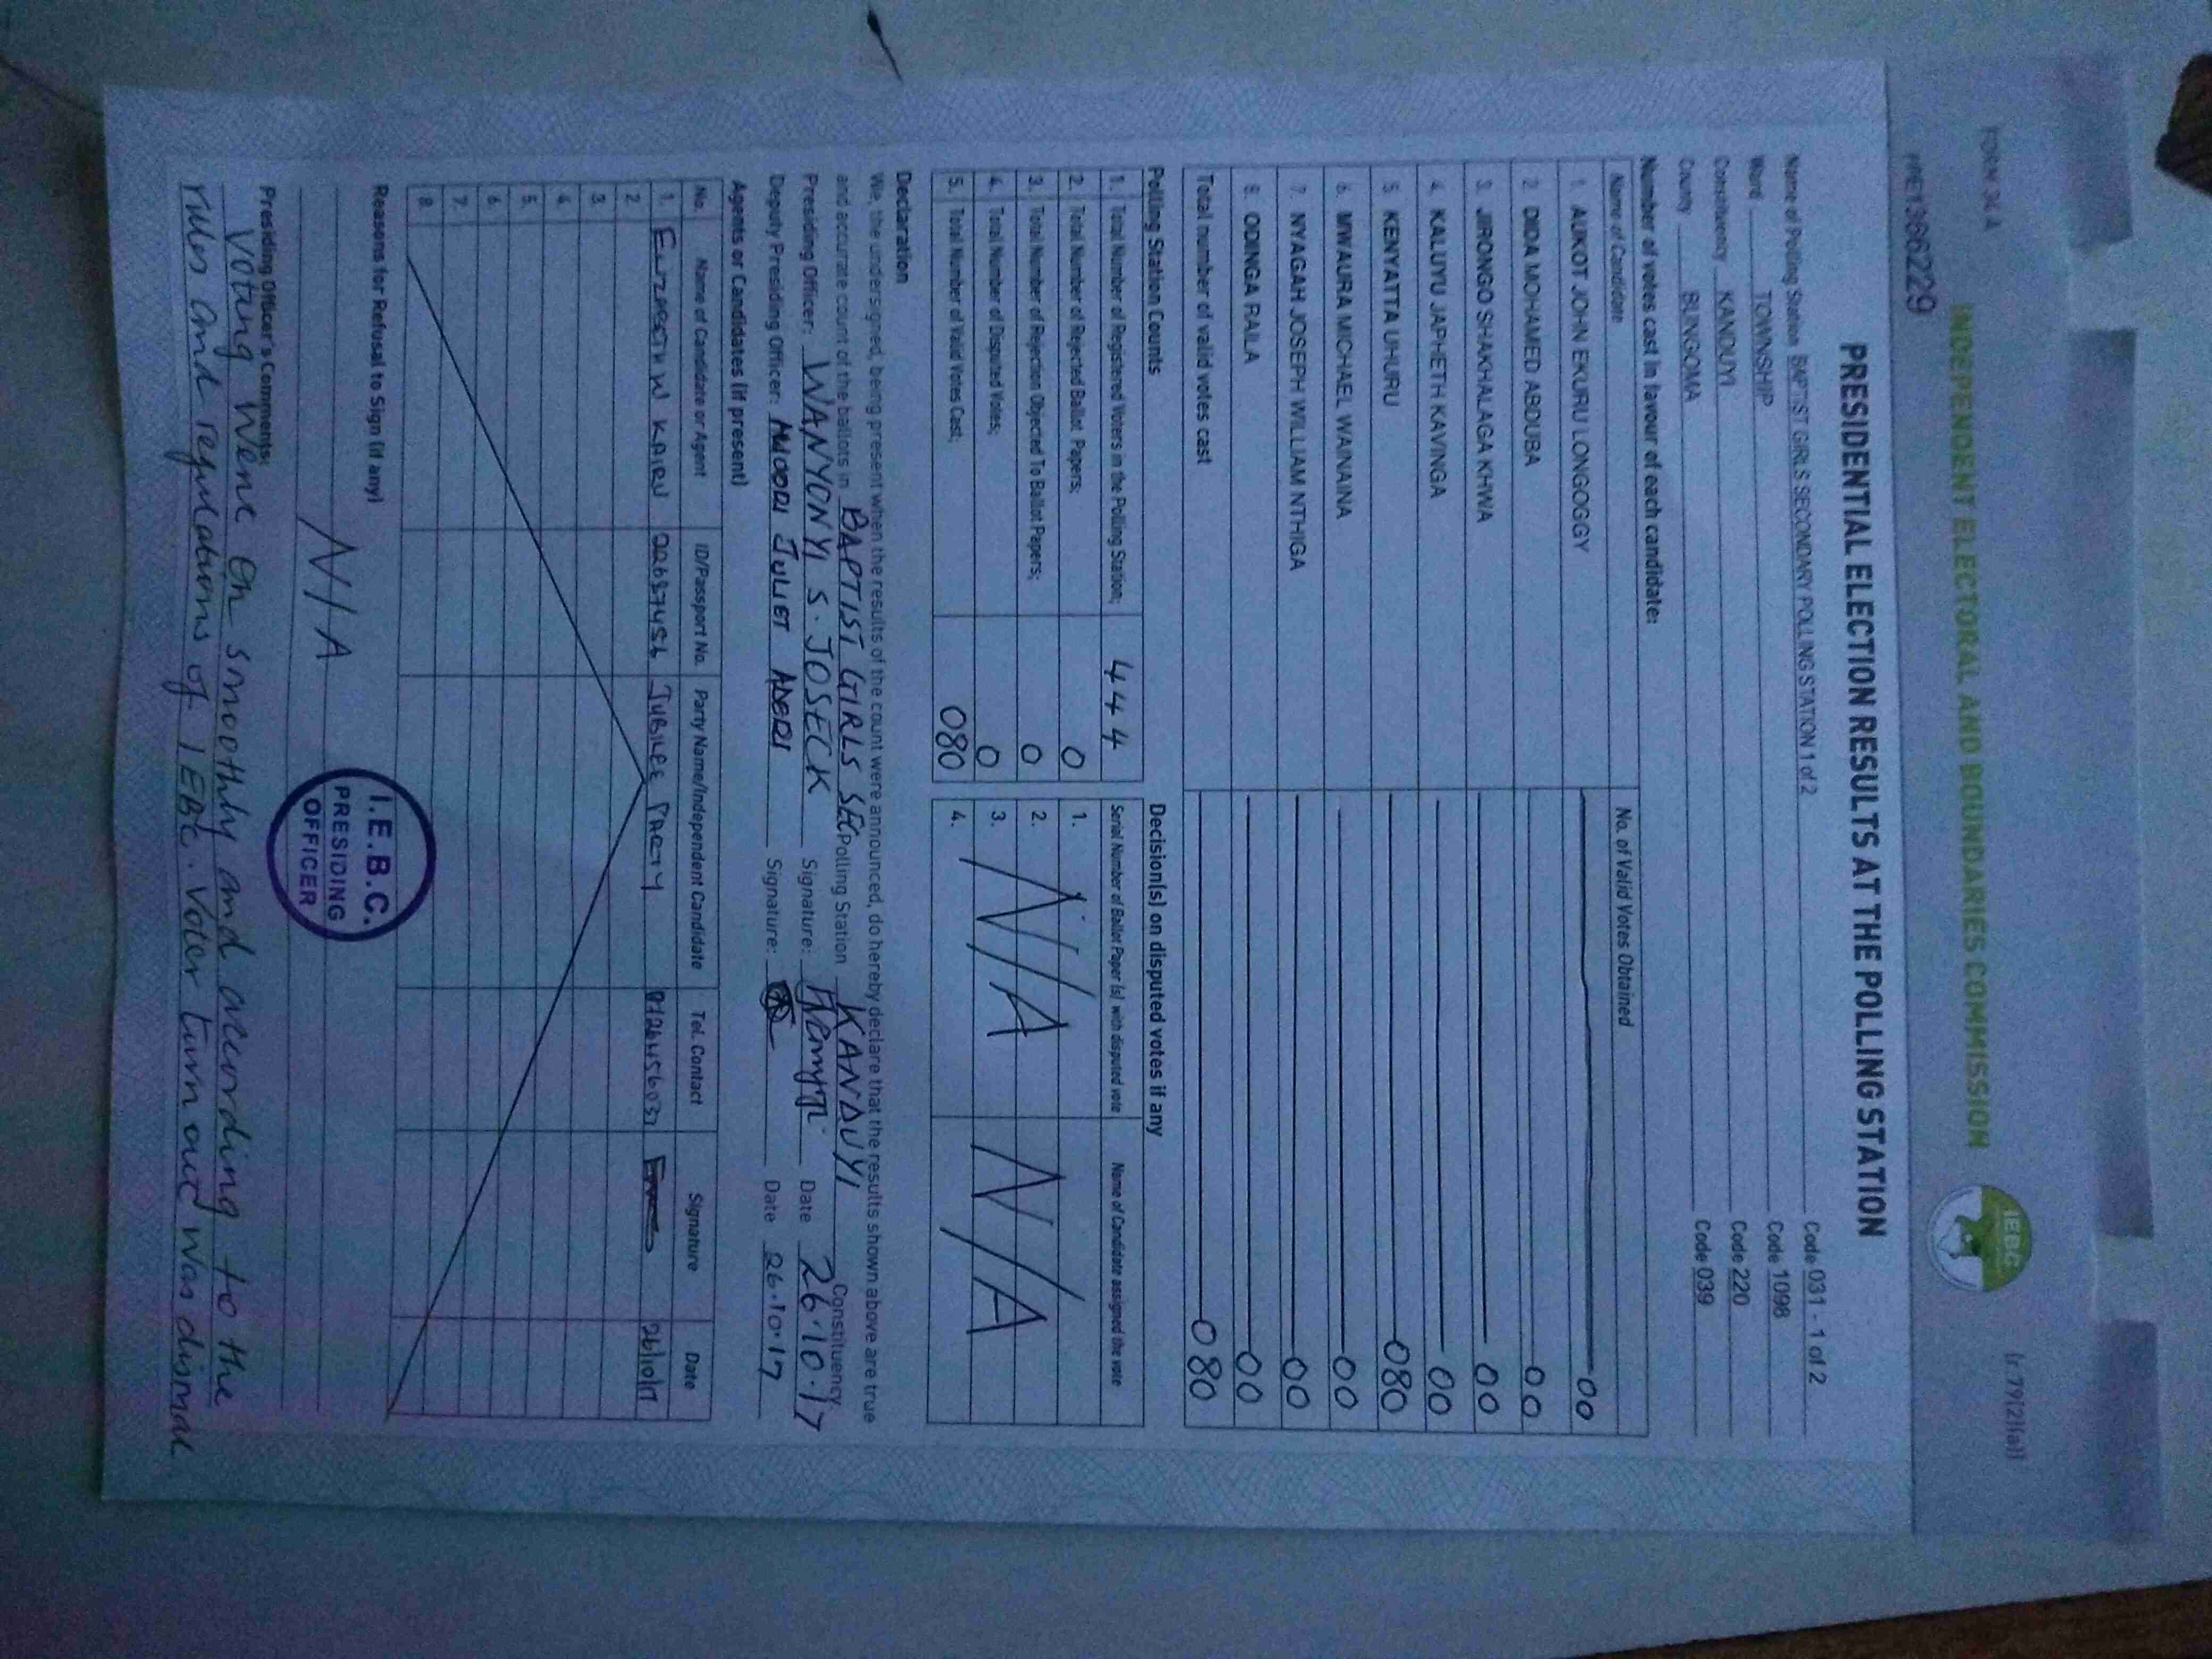 FORM 34 A
(r 79(2)(a))
INDEPENDENT ELECTORAL AND BOUNDARIES COMMISSION
IEBC
PRESIDENTIAL ELECTION RESULTS AT THE POLLING STATION
Name of Polling Station BAPTIST GIRLS SECONDARY POLLING STATION 1 of 2 Code 031 - 1 of 2
Ward TOWNSHIP Code 1098
Constituency KANDUYI Code 220
County BUNGOMA Code 039
Number of votes cast in favour of each candidate:
Name of Candidate No. of Valid Votes Obtained
1. AUKOT JOHN EKURU LONGOGGY 00
2. DIDA MOHAMED ABDUBA 00
3. JIRONGO SHAKHALAGA KHWA 00
4. KALUYU JAPHETH KAVINGA 00
5. KENYATTA UHURU 080
6. MWAURA MICHAEL WAINAINA 00
7. NYAGAH JOSEPH WILLIAM NTHIGA 00
8. ODINGA RAILA 00
Total number of valid votes cast 080
Polling Station Counts
1. Total Number of Registered Voters in the Polling Station; 444
2. Total Number of Rejected Ballot Papers; 0
3. Total Number of Rejection Objected To Ballot Papers; 0
4. Total Number of Disputed Votes; 0
5. Total Number of Valid Votes Cast; 080
Decision(s) on disputed votes if any
Serial Number of Ballot Paper (s) with disputed vote Name of Candidate assigned the vote
1.
2.
3. N/A N/A
4.
Declaration
We, the undersigned, being present when the results of the count were announced, do hereby declare that the results shown above are true
and accurate count of the ballots in BAPTIST GIRLS SEC Polling Station KANDUYI Constituency
Presiding Officer: WANYONYI S. JOSECK Signature: Date 26.10.17
Deputy Presiding Officer: JULIET Signature: Date 26.10.17
Agents or Candidates (if present)
No. Name of Candidate or Agent ID/Passport No. Party Name/Independent Candidate Tel. Contact Signature Date
1. W KAIRU JUBILEE PARTY 26/10/17
2
3.
4
5.
6.
7.
8.
Reasons for Refusal to Sign (if any)
N/A
I.E.B.C.
PRESIDING
OFFICER
Presiding Officer's Comments:
Voting Wene on smoothly and according to the
rules and regulations of IEBC. Voter turn out was dismal